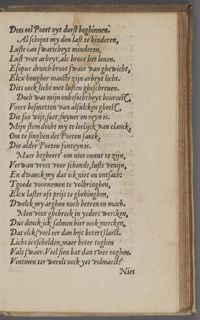 Dees eel Poeet oyt dorst beghinnen.
Al schijnt my den last te hinderen,
Luste can swaricheyt minderen,
Lust voet arbeyt, als broot het leven.
Elcx hongher maeckt zijn arbeyt licht.
Dits oock licht met lusten gheschreven.
Doch was mijn onbesocht heyt
Voort besmetten van
Die soo wijs, soet, suyver en reyn is.
Mijn stem docht my te leelijck van clanck,
Om te singhen des Poeten sanck,
Die alder Poeten fonteyn is.
Maer begheert om niet onnut te zijn,
Verwan vrees voor schande, lust verwijn,
En dwanck my dat ick niet en ontsacht
Tgoede voornemen te volbringhen,
Elcx laster oft prijs te ghehinghen,
Dwelck my arghen noch beteren mach.
Men vint ghebreck in yeders wercken,
Dus denck ick salmen hier oock mercken,
Dat elck (veel eer dan hijt betert) laeckt.
Licht ist schelden, maer beter toghen
Valt swaer. Veel sien bat dan twee ooghen.
Vintmen ter werelt oock yet volmaeckt?
Niet